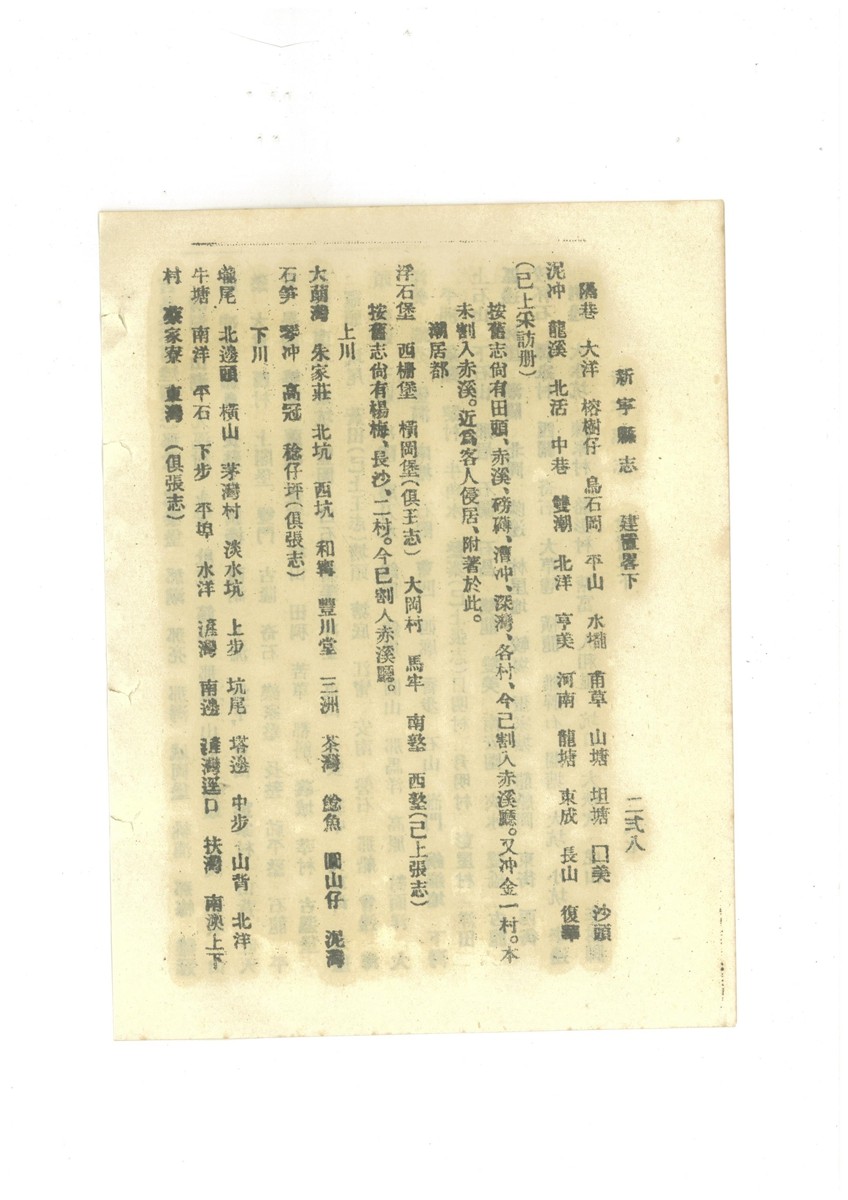 新寧縣志 建置畧下 二六八
隔巷 大洋 榕樹仔 烏石岡 平山 水壠 甫草 山塘 坦塘 □美 沙頭
泥冲 龍溪 北活 中巷 雙潮 北洋 亨美 河南 龍塘 東成 長山 復華
(已上采訪册)
按舊志尙有田頭、赤溪、磅礴、漕冲、深灣、各村、今已割入赤溪廳。又冲金一村。本
未割入赤溪。近爲客人侵居、附著於此。
潮居都
浮石堡 西柵堡 橫岡堡(俱王志) 大岡村 馬牢 南塾 西塾(已上張志)
按舊志尙有楊梅、長沙、二村。今已割人赤溪廳。
上川
大蘭灣 朱家莊 北坑 西坑 和寗 豐川堂 三洲 茶灣 鯰魚 圓山仔 泥灣
石笋 琴冲 高冠 稔仔坪(俱張志)
下川
壠尾 北邊頭 橫山 茅灣村 淡水坑 上步 坑尾 塔邊 中步 山背 北洋
牛塘 南洋 平石 下步 平埠 水洋 灣 南邊 灣 口 扶灣 南澳上下
村 蔡家寮 東灣 (俱張志)